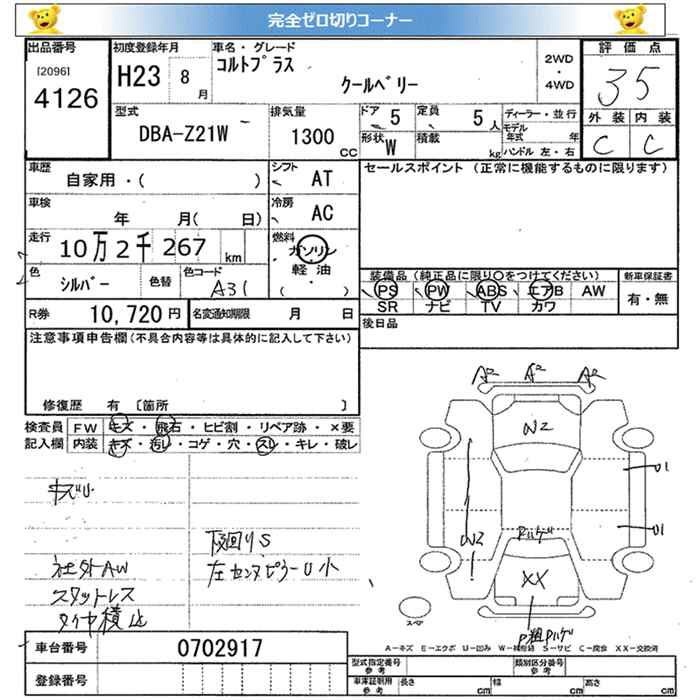 完全ゼロ切りコーナー
出品番号 初度登録年月 車名・グレード 2WD・4WD 評価点
[2096] 4126 H23 8月 コルトプラス クールベリー 35
型式 排気量 ドア 5 定員 5人 ディーラー・並行 外装 内装
DBA-Z21W 1300CC 形状 W 積載 kg モデル年式 年 C C
ハンドル 左・右
車歴 シフト セールスポイント (正常に機能するものに限ります)
自家用・( ) AT
車検 年 月( 日) 冷房 AC
走行 10万2千267km 燃料 ガソリン・軽油・( )
色 シルバー 色替 色コード A31 装備品 (純正品に限り○をつけてください) 新車保証書
PS PW ABS エアB AW 有・無
SR ナビ TV カワ
R券 10,720円 名変通知期限 月 日 後日品
注意事項申告欄(不具合内容等は具体的に記入して下さい)
修復歴 有 〔箇所 〕
検査員 FW キズ・飛石・ヒビ割・リペア跡・×要
記入欄 内装 キズ・汚レ・コゲ・穴・スレ・キレ・破レ
A2 A2 A2
W2
キズU U1
下回りS W2 U1
社外AW 左センターピラーU小
スタットレス XX
タイヤ積込
スペア
車台番号 0702917 A-キズ E-エクボ U-凹み W-補修跡 S-サビ C-腐食 XX-交換済
登録番号 型式指定番号 参考 類別区分番号 参考
車庫証明用 参考 長さ cm 幅 cm 高さ cm